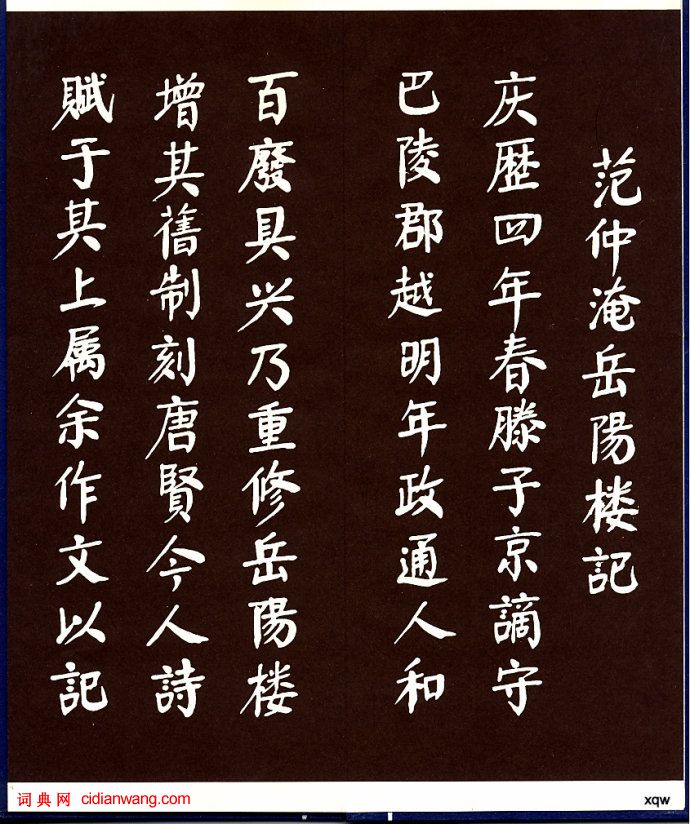 范仲淹岳陽楼記
庆歷四年春滕子京謫守
巴陵郡越明年政通人和
百廢具兴乃重修岳陽楼
增其舊制刻唐賢今人詩
賦于其上属余作文以记
词典网 cidianwang.com
xqw